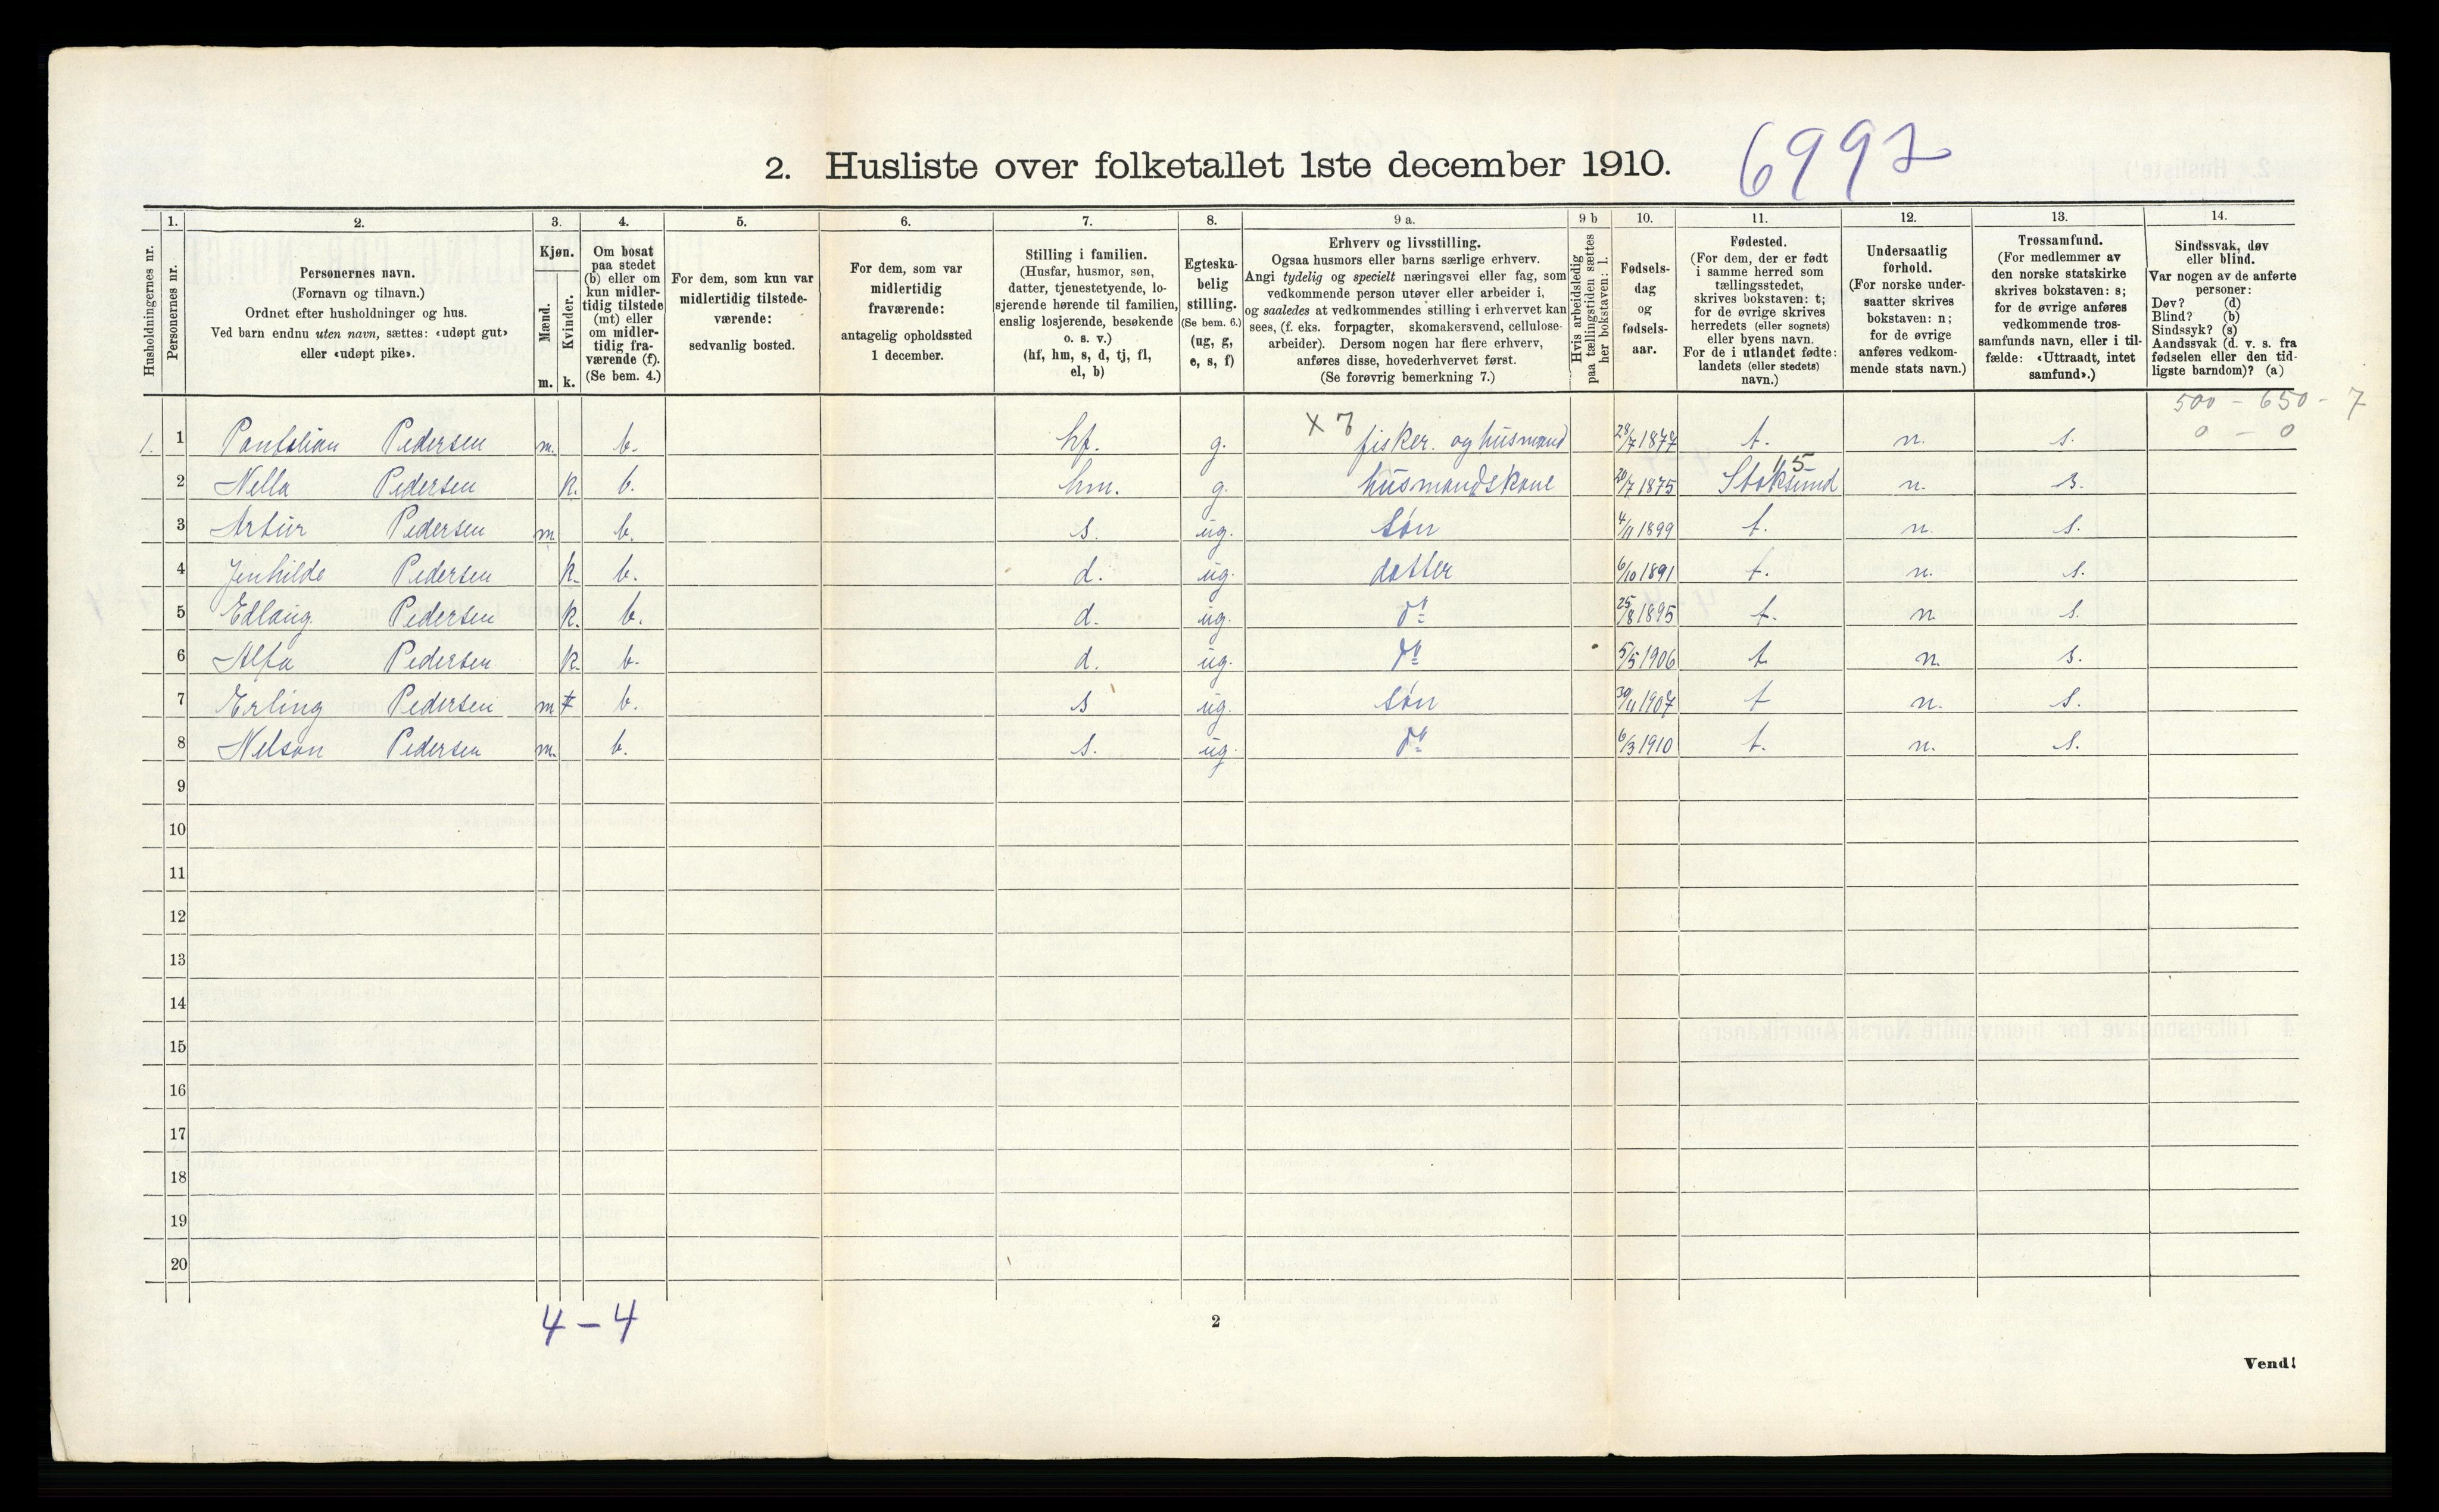 2. Husliste over folketallet 1ste december 1910.
6992
Husholdningernes nr.
1.
Personernes nr.
2.
Personernes navn.
(Fornavn og tilnavn.)
Ordnet efter husholdninger og hus.
Ved barn endnu uten navn, sættes: «udøpt gut»
eller «udøpt pike».
3.
Kjøn.
Mænd.
Kvinder.
m. k.
4.
Om bosat
paa stedet
(b) eller om
kun midler-
tidig tilstede
(mt) eller
om midler-
tidig fra-
værende (f).
(Se bem. 4.)
5.
For dem, som kun var
midlertidig tilstede-
værende:
sedvanlig bosted.
6.
For dem, som var
midlertidig
fraværende:
antagelig opholdssted
1 december.
7.
Stilling i familien.
(Husfar, husmor, søn,
datter, tjenestetyende, lo-
sjerende hørende til familien,
enslig losjerende, besøkende
o. s. v.)
(hf, hm, s, d, tj, fl,
el, b)
8.
Egteska-
belig
stilling.
(Se bem. 6.)
(ug, g,
e, s, f)
9 a.
Erhverv og livsstilling.
Ogsaa husmors eller barns særlige erhverv.
Angi tydelig og specielt næringsvei eller fag, som
vedkommende person utøver eller arbeider i,
og saaledes at vedkommendes stilling i erhvervet kan
sees, (f. eks. forpagter, skomakersvend, cellulose-
arbeider). Dersom nogen har flere erhverv,
anføres disse, hovederhvervet først.
(Se forøvrig bemerkning 7.)
9 b
Hvis arbeidsledig
paa tællingstiden sættes
her bokstaven: l.
10.
Fødsels-
dag
og
fødsels-
aar.
11.
Fødested.
(For dem, der er født
i samme herred som
tællingsstedet,
skrives bokstaven: t;
for de øvrige skrives
herredets (eller sognets)
eller byens navn.
For de i utlandet fødte:
landets (eller stedets)
navn.)
12.
Undersaatlig
forhold.
(For norske under-
saatter skrives
bokstaven: n;
for de øvrige
anføres vedkom-
mende stats navn.)
13.
Trossamfund.
(For medlemmer av
den norske statskirke
skrives bokstaven: s;
for de øvrige anføres
vedkommende tros-
samfunds navn, eller i til-
fælde: «Uttraadt, intet
samfund».)
14.
Sindssvak, døv
eller blind.
Var nogen av de anførte
personer:
Døv? (d)
Blind? (b)
Sindssyk? (s)
Aandssvak (d. v. s. fra
fødselen eller den tid-
ligste barndom)? (a)
500 - 650 - 7
0 - 0
x 7
1. 1 Pedersen m. b. hf. g. fisker. og husmand 28/7 1877 t. n. s.
115
2 Nella Pedersen k. b. hm. g. husmandskone 20/7 1875 Stoksund n. s.
3 Artur Pedersen m b. s. ug. søn 4/11 1899 t. n. s.
4 Jenhilde Pedersen k. b. d. ug. datter 6/10 1891 t. n. s.
5 Edlaug Pedersen k. b. d. ug. do 25/8 1895 t. n. s.
6 Alfa Pedersen k. b. d. ug. do 5/5 1906 t n. s.
7 Erling Pedersen m b. s ug. søn 30/11 1907 t n. s.
8 Nelson Pedersen m. b. s. ug. do 6/3 1910 t. n. s.
9
10
11
12
13
14
15
16
17
18
19
20
4 - 4
2
Vend!